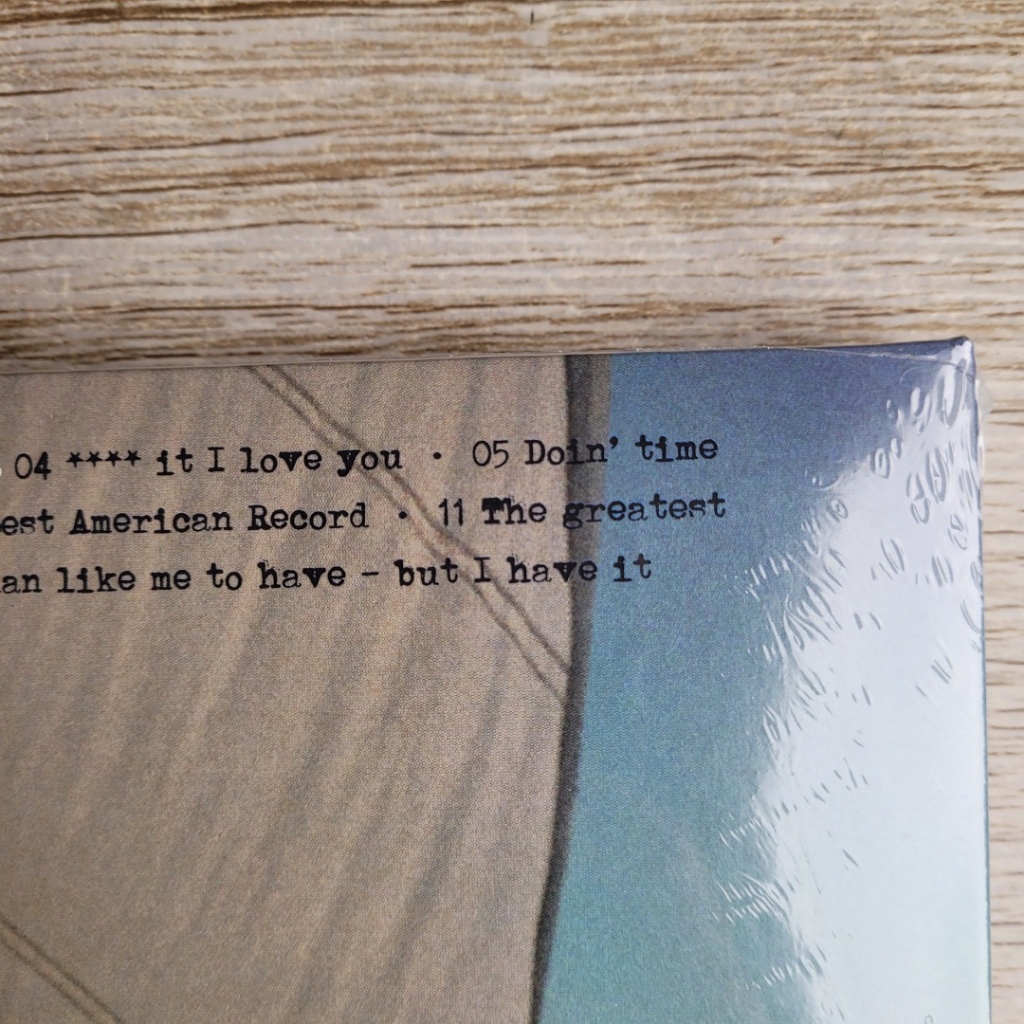 04 **** it I love you · 05 Doin' time
est American Record · 11 The greatest
an like me to have – but I have it